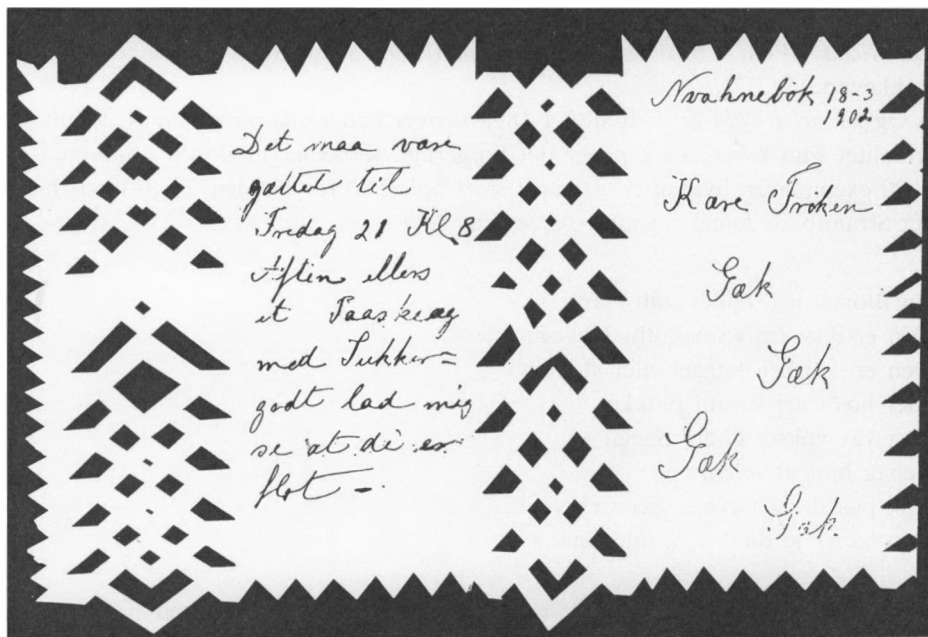 Det maa være
gættet til
Fredag 21 Kl 8
Aftin ellers
et Paaskeæg
med Sukker=
godt lad mig
se at di er
flot –
Nvahnebök 18-3
1902
Kære Fröken
Gæk
Gæk
Gæk
Gæk